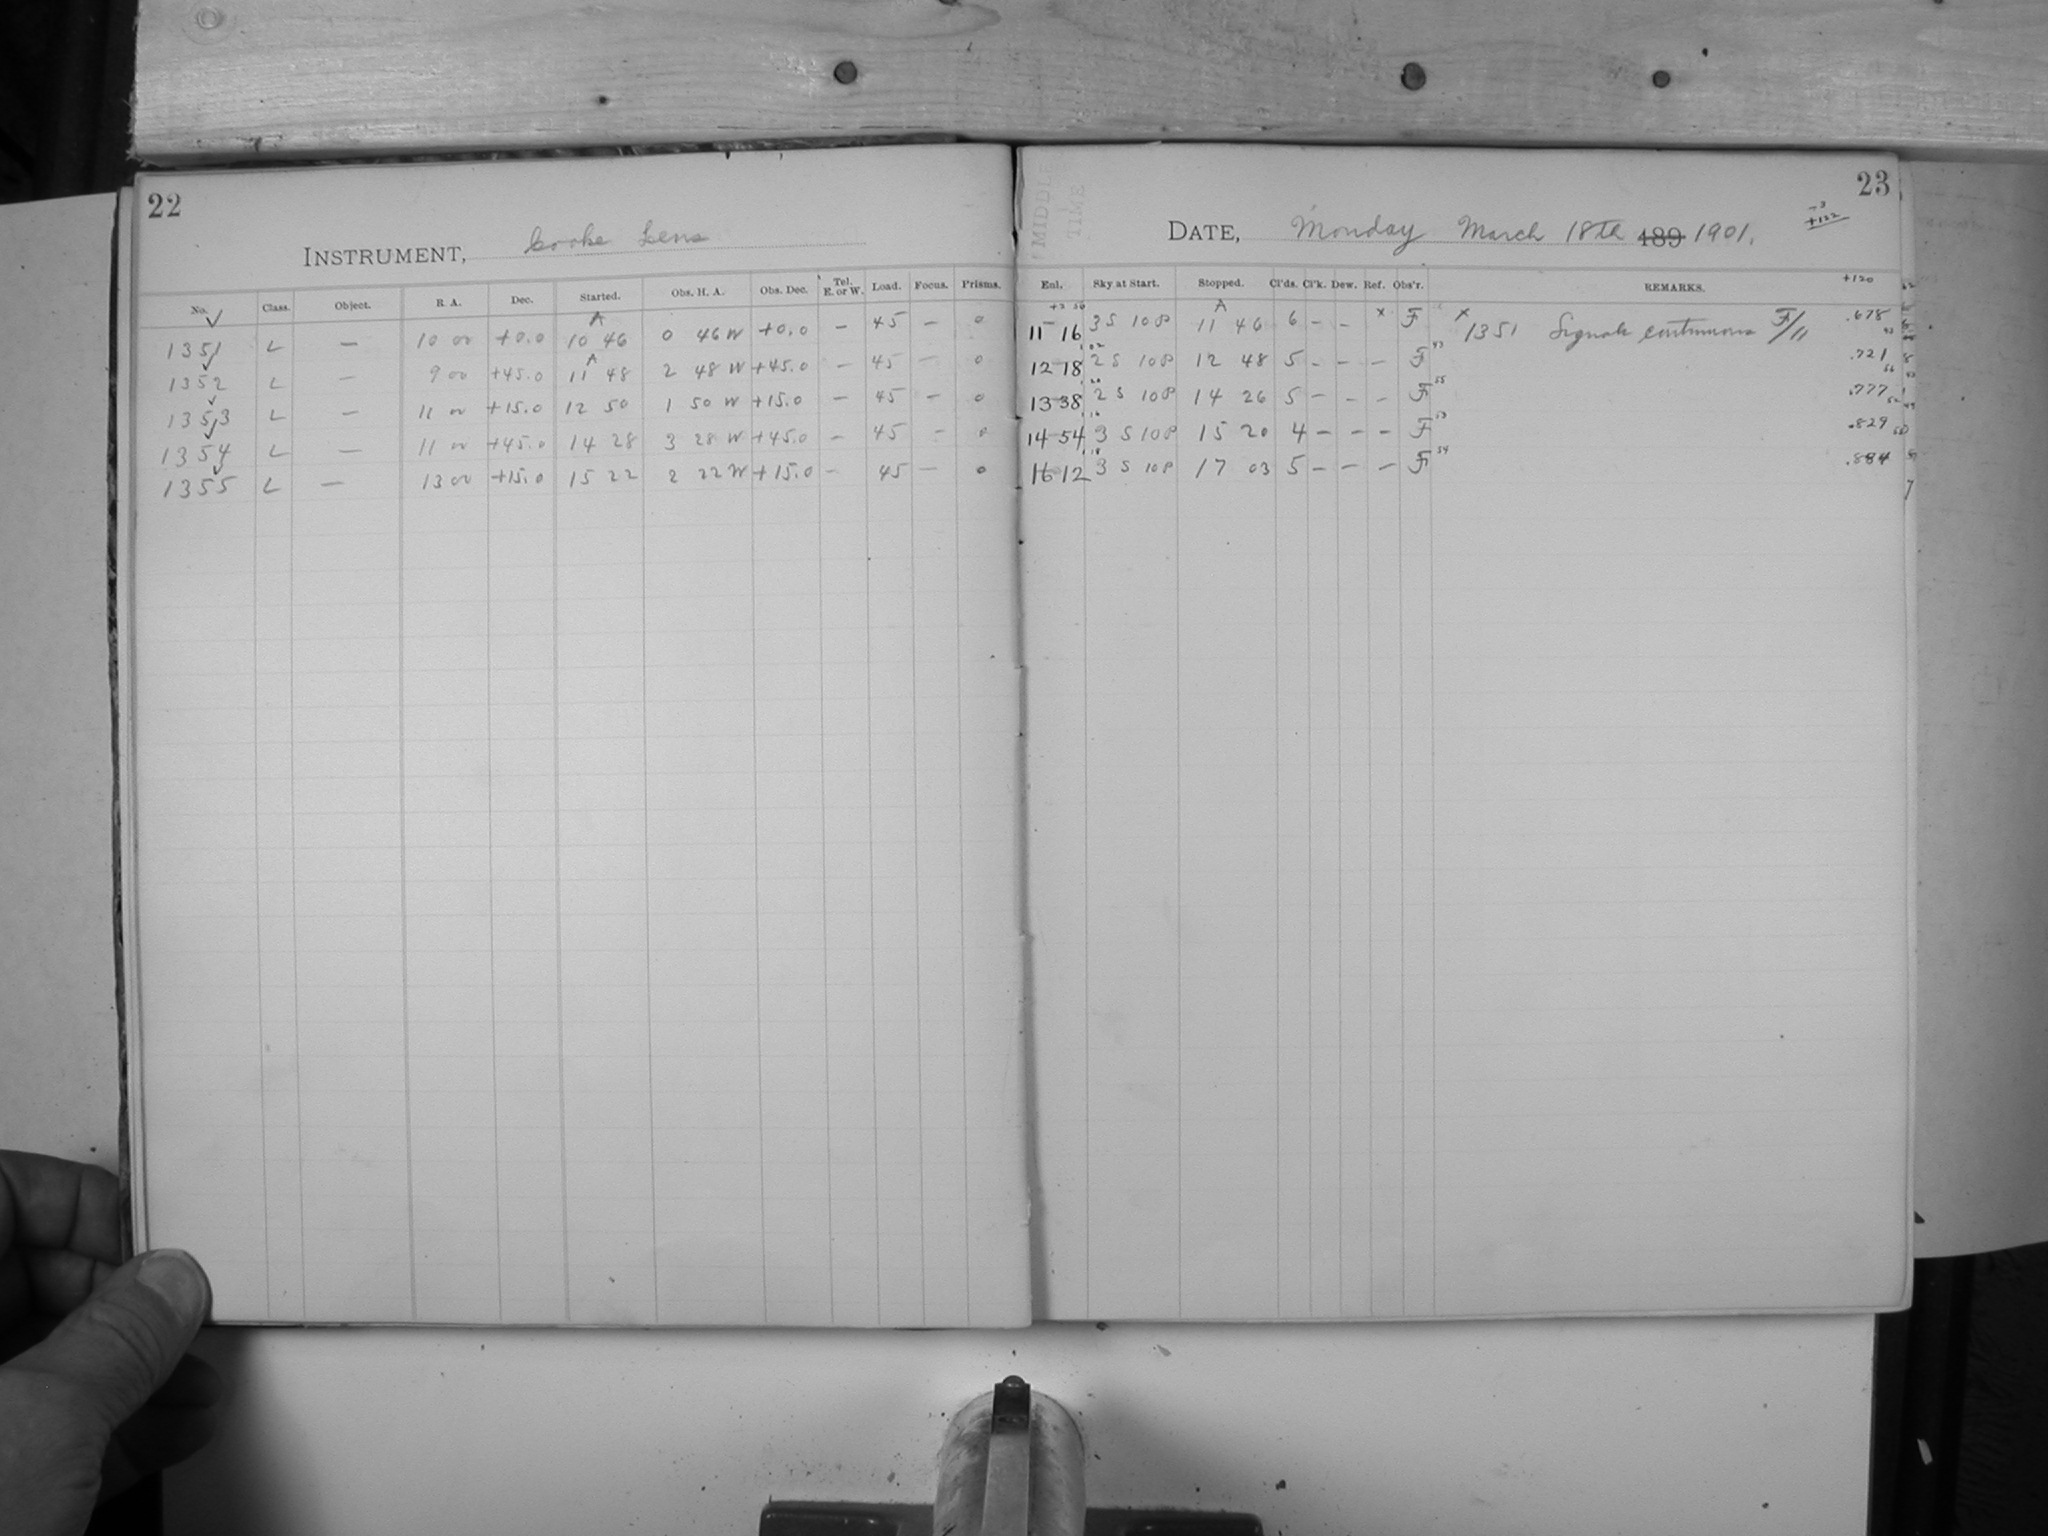 22
INSTRUMENT, Cooke Lens
No. Class. Object. R. A. Dec. Started. Obs. H. A. Obs. Dec. Tel. E. or W. Load. Focus. Prisms.
1351 L — 10 00 +0.0 A 10 46 0 46 W +0.0 — 45 — 0
1352 L — 9 00 +45.0 A 11 48 2 48 W +45.0 — 45 — 0
1353 L — 11 00 +15.0 12 50 1 50 W +15.0 — 45 — 0
1354 L — 11 00 +45.0 14 28 3 28 W +45.0 — 45 — 0
1355 L — 13 00 +15.0 15 22 2 22 W +15.0 — 45 — 0
MIDDLE TIME
23
DATE, Monday March 18th 189 1901.
-3
+122
Enl. Sky at Start. Stopped. Cl'ds. Cl'k. Dew. Ref. Obs'r. REMARKS. +120
11 16 3 S 10 P A 11 46 6 — — x F x 1351 Signals continuous F/11 .678
12 18 2 S 10 P 12 48 5 — — — F .721
13 38 2 S 10 P 14 26 5 — — — F .777
14 54 3 S 10 P 15 20 4 — — — F .829
16 12 3 S 10 P 17 03 5 — — — F .884